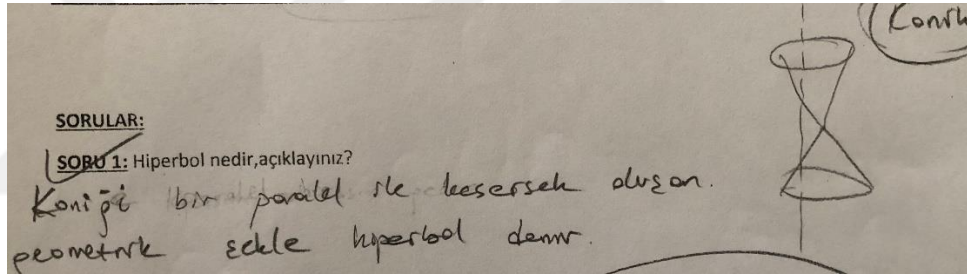 Konik
SORULAR:
SORU 1: Hiperbol nedir,açıklayınız?
Koniği bir paralel ile kesersek oluşan.
geometrik şekle hiperbol denir.